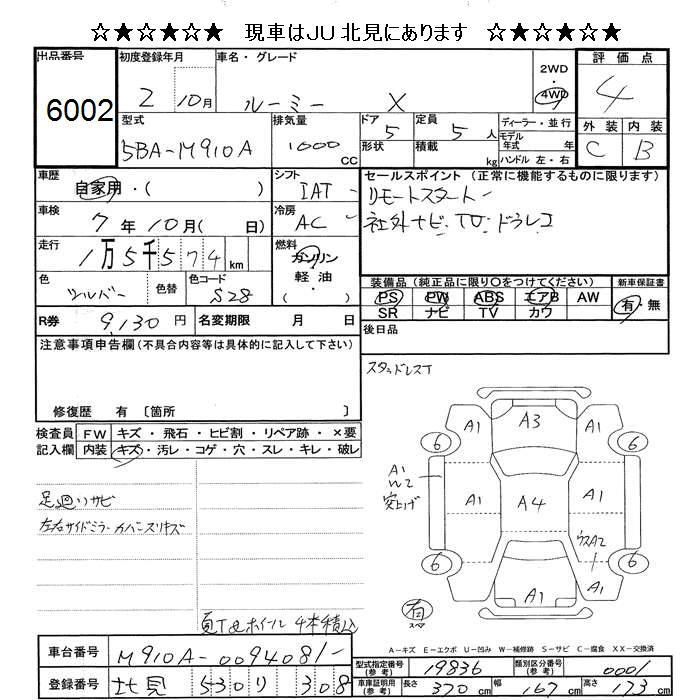 ☆★☆★☆★ 現車はJU北見にあります ☆★☆★☆★
出品番号 6002
初度登録年月 2 10月
車名・グレード ルーミー X
2WD 4WD
評価点 4
外装 C 内装 B
型式 5BA-M910A
排気量 1000 CC
ドア 5 形状
定員 5 人 積載 kg
ディーラー・並行
モデル年式 年
ハンドル 左・右
車歴 自家用・( )
シフト IAT
セールスポイント (正常に機能するものに限ります)
リモートスタート
社外ナビ・TV・ドラレコ
車検 7年10月( 日)
冷房 AC
走行 1万5千574 km
燃料 ガソリン 軽油 ( )
色 シルバー 色替 色コード S28
装備品 (純正品に限り〇をつけてください)
PS PW ABS エアB AW
SR ナビ TV カワ
新車保証書 有・無
R券 9,130円 名変期限 月 日
後日品
注意事項申告欄(不具合内容等は具体的に記入して下さい)
スタッドレスT
修復歴 有 〔箇所 〕
検査員記入欄
FW キズ・飛石・ヒビ割・リペア跡・×要
内装 キズ・汚レ・コゲ・穴・スレ・キレ・破レ
足廻りサビ
左右サイドミラーカバースリキズ
夏T&ホイール 4本積込
A1 A3 A1
6 6
A1
突上げ
A1 A4 A1
ウスA2
6 6
A1 A1
有 スペア
A-キズ E-エクボ U-凹み W-補修跡 S-サビ C-腐食 XX-交換済
車台番号 M910A-0094081/-
登録番号 北見 530 り 308
型式指定番号(参考) 19836 類別区分番号(参考) 0001
車庫証明用(参考) 長さ 370 cm 幅 167 cm 高さ 173 cm